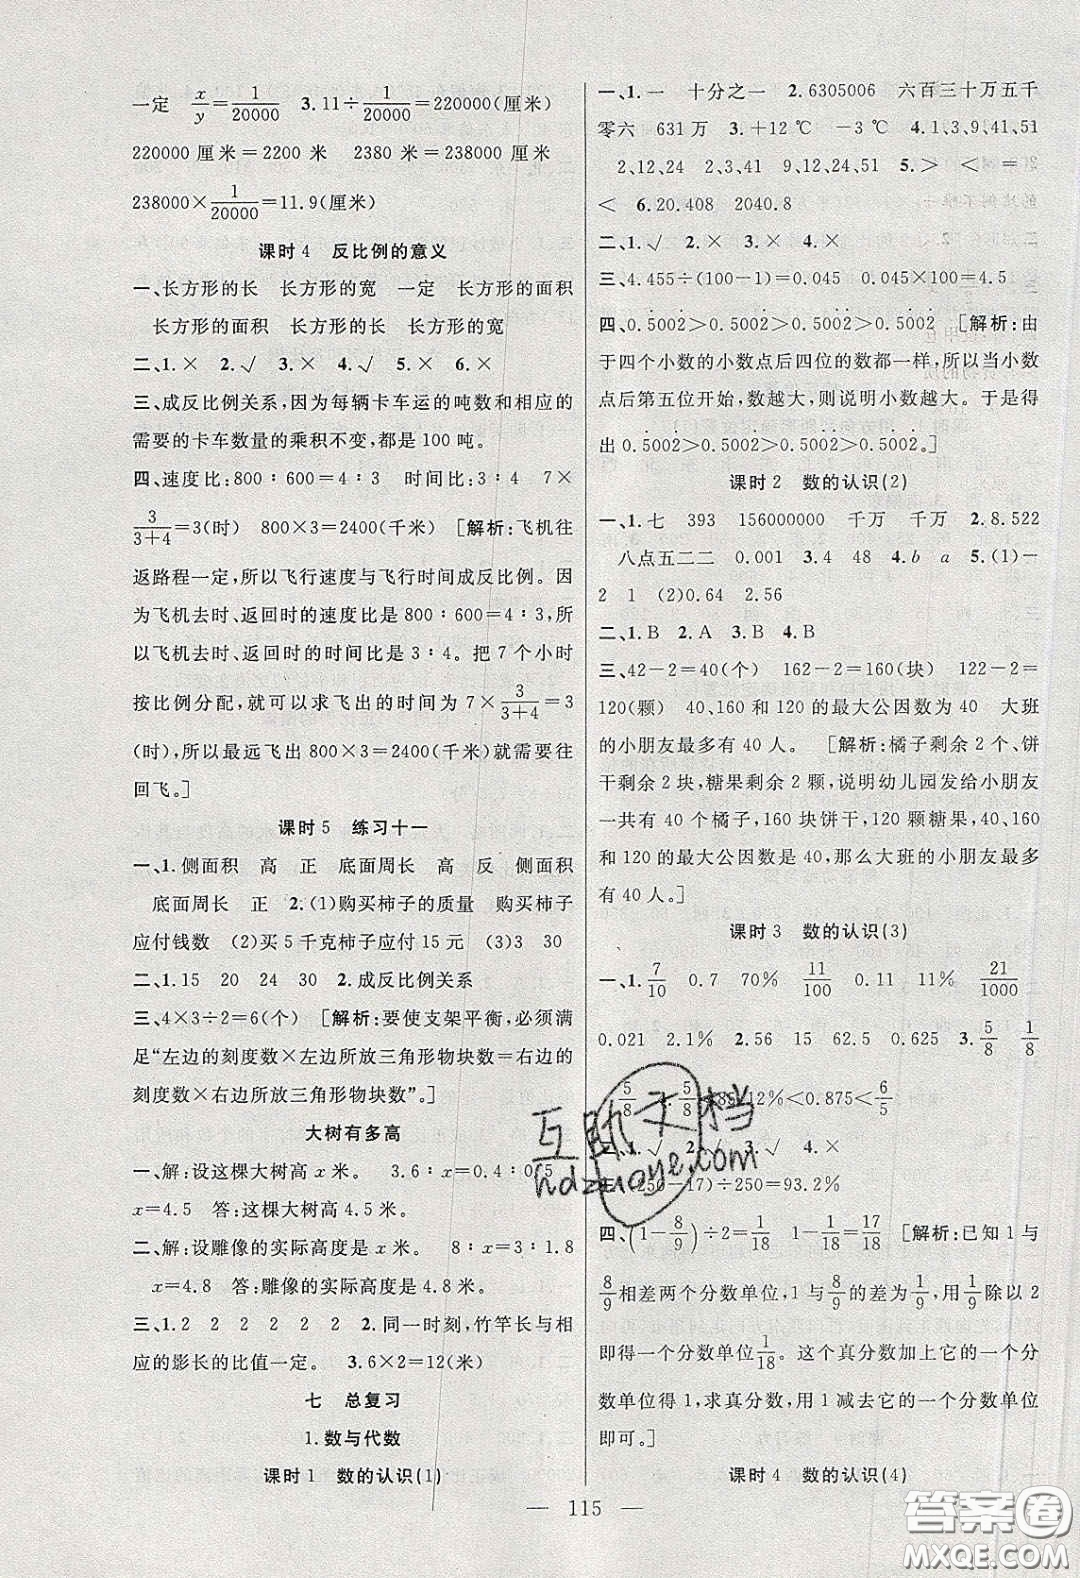 一定　x/y=1/20000　3.11÷1/20000=220000(厘米)
220000厘米=2200米　2380米=238000厘米
238000×1/20000=11.9(厘米)
课时4　反比例的意义
一、长方形的长　长方形的宽　一定　长方形的面积
长方形的面积　长方形的长　长方形的宽
二、1.×　2.√　3.×　4.√　5.×　6.×
三、成反比例关系,因为每辆卡车运的吨数和相应的
需要的卡车数量的乘积不变,都是100吨。
四、速度比:800∶600=4∶3　时间比:3∶4　7×
3/(3+4)=3(时)　800×3=2400(千米)　[解析:飞机往
返路程一定,所以飞行速度与飞行时间成反比例。因
为飞机去时、返回时的速度比是800∶600=4∶3,所
以飞机去时、返回时的时间比是3∶4。把7个小时
按比例分配,就可以求飞出的时间为7×3/(3+4)=3
(时),所以最远飞出800×3=2400(千米)就需要往
回飞。]
课时5　练习十一
一、1.侧面积　高　正　底面周长　高　反　侧面积
底面周长　正　2.(1)购买柿子的质量　购买柿子
应付钱数　(2)买5千克柿子应付15元　(3)3　30
二、1.15　20　24　30　2.成反比例关系
三、4×3÷2=6(个)　[解析:要使支架平衡,必须满
足“左边的刻度数×左边所放三角形物块数=右边的
刻度数×右边所放三角形物块数”。]
大树有多高
一、解:设这棵大树高x米。　3.6∶x=0.4∶0.5
x=4.5　答:这棵大树高4.5米。
二、解:设雕像的实际高度是x米。　8∶x=3∶1.8
x=4.8　答:雕像的实际高度是4.8米。
三、1.2　2　2　2　2　2　2.同一时刻,竹竿长与相
应的影长的比值一定。　3.6×2=12(米)
七　总复习
1.数与代数
课时1　数的认识(1)
一、1.一　十分之一　2.6305006　六百三十万五千
零六　631万　3.+12℃　-3℃　4.1、3、9、41、51
2、12、24　2、3、41　9、12、24、51　5.>　<　=
<　6.20.408　2040.8
二、1.√　2.×　3.×　4.×
三、4.455÷(100-1)=0.045　0.045×100=4.5
四、0.5002>0.5002>0.5002>0.5002　[解析:由
于四个小数的小数点后四位的数都一样,所以当小数
点后第五位开始,数越大,则说明小数越大。于是得
出0.5002>0.5002>0.5002>0.5002。]
课时2　数的认识(2)
一、1.七　393　156000000　千万　千万　2.8.522
八点五二二　0.001　3.4　48　4.b　a　5.(1)-
2　1　(2)0.64　2.56
二、1.B　2.A　3.B　4.B
三、42-2=40(个)　162-2=160(块)　122-2=
120(颗)　40、160和120的最大公因数为40　大班
的小朋友最多有40人。　[解析:橘子剩余2个、饼
干剩余2块,糖果剩余2颗,说明幼儿园发给小朋友
一共有40个橘子,160块饼干,120颗糖果,40、160
和120的最大公因数是40,那么大班的小朋友最多
有40人。]
课时3　数的认识(3)
一、1.7/10　0.7　70%　11/100　0.11　11%　21/1000
0.021　2.1%　2.56　15　62.5　0.625　3.5/8　1/8
5/8　5/8　12%<0.875<6/5
√　2.×　3.√　4.×
(250-17)÷250=93.2%
四、(1-8/9)÷2=1/18　1-1/18=17/18　[解析:已知1与
8/9相差两个分数单位,1与8/9的差为1/9,用1/9除以2
即得一个分数单位1/18。这个真分数加上它的一个分
数单位得1,求真分数,用1减去它的一个分数单位
即可。]
课时4　数的认识(4)
115
互助文档
hdzuoye.com
答案圈
MXQE.COM